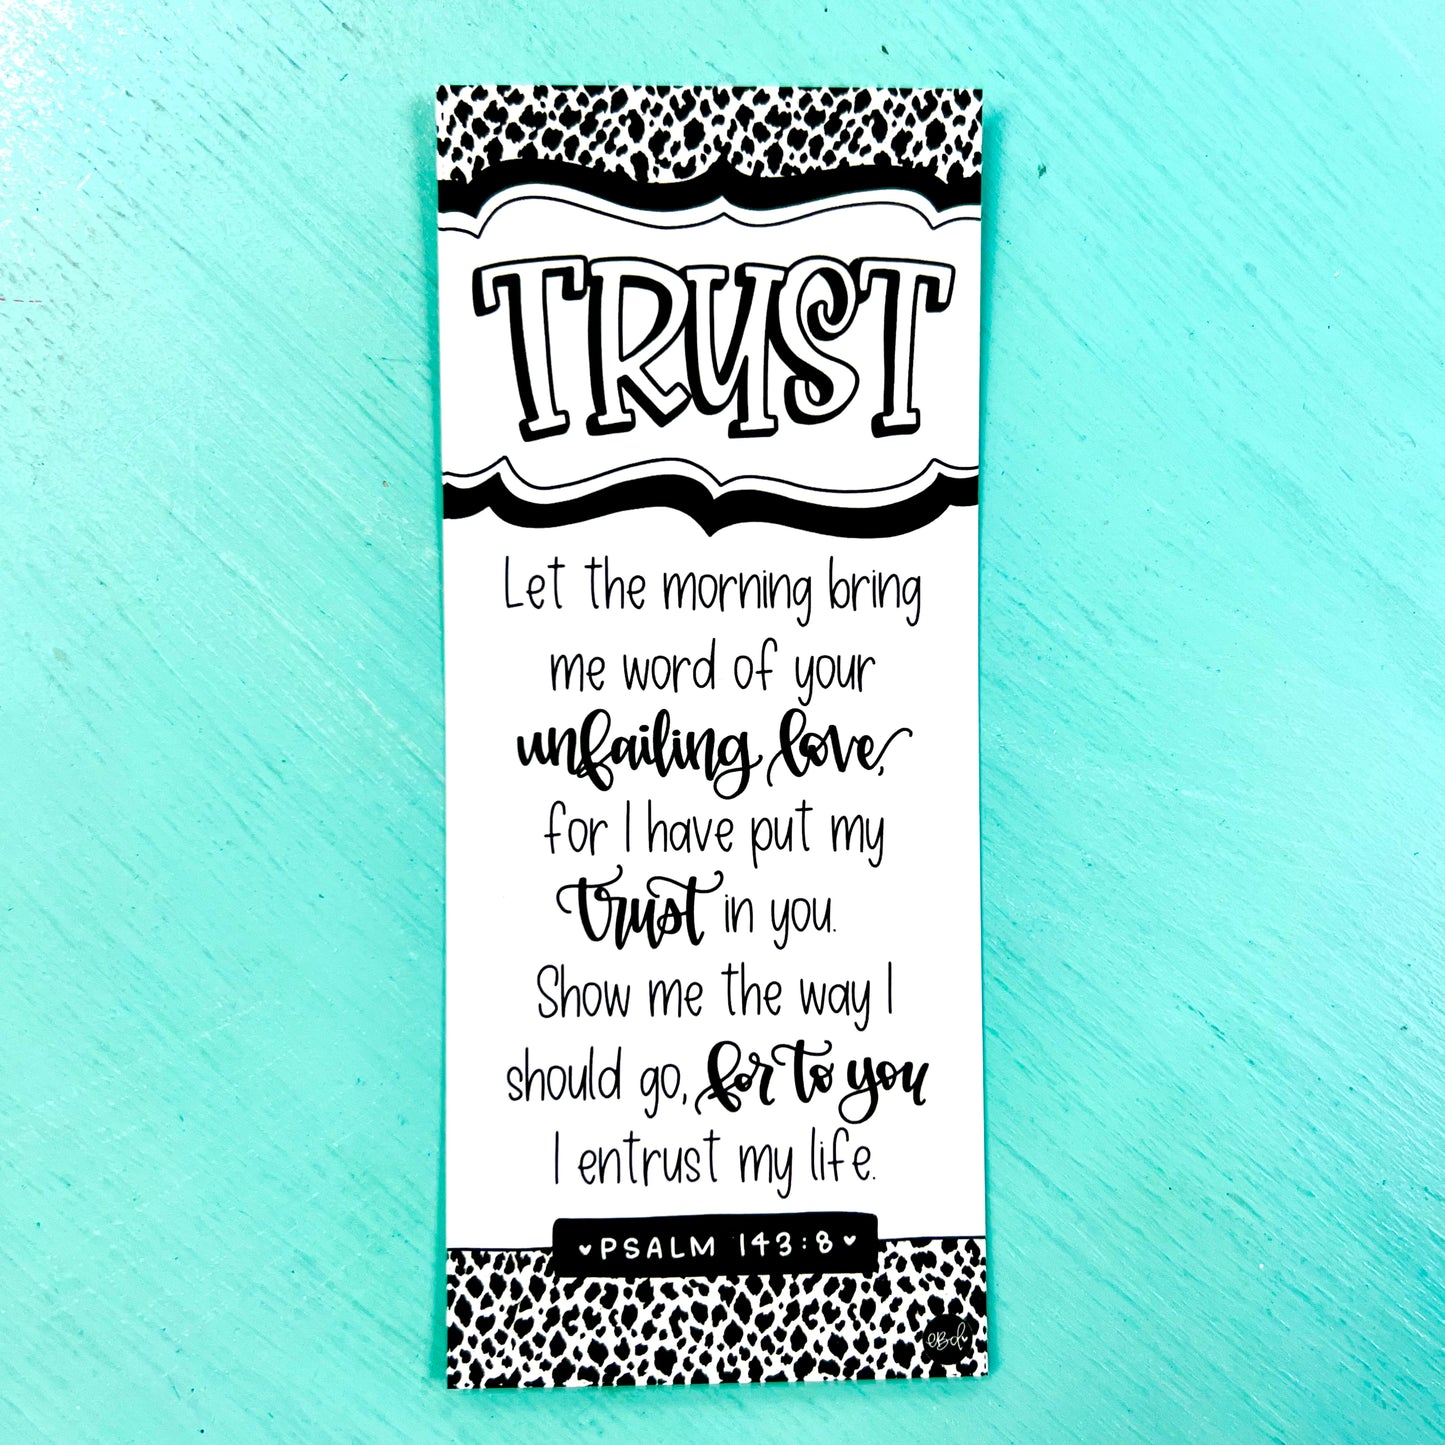 TRUST
Let the morning bring
me word of your
unfailing love,
for I have put my
trust in you.
Show me the way I
should go, for to you
I entrust my life.
PSALM 143:8
eBd